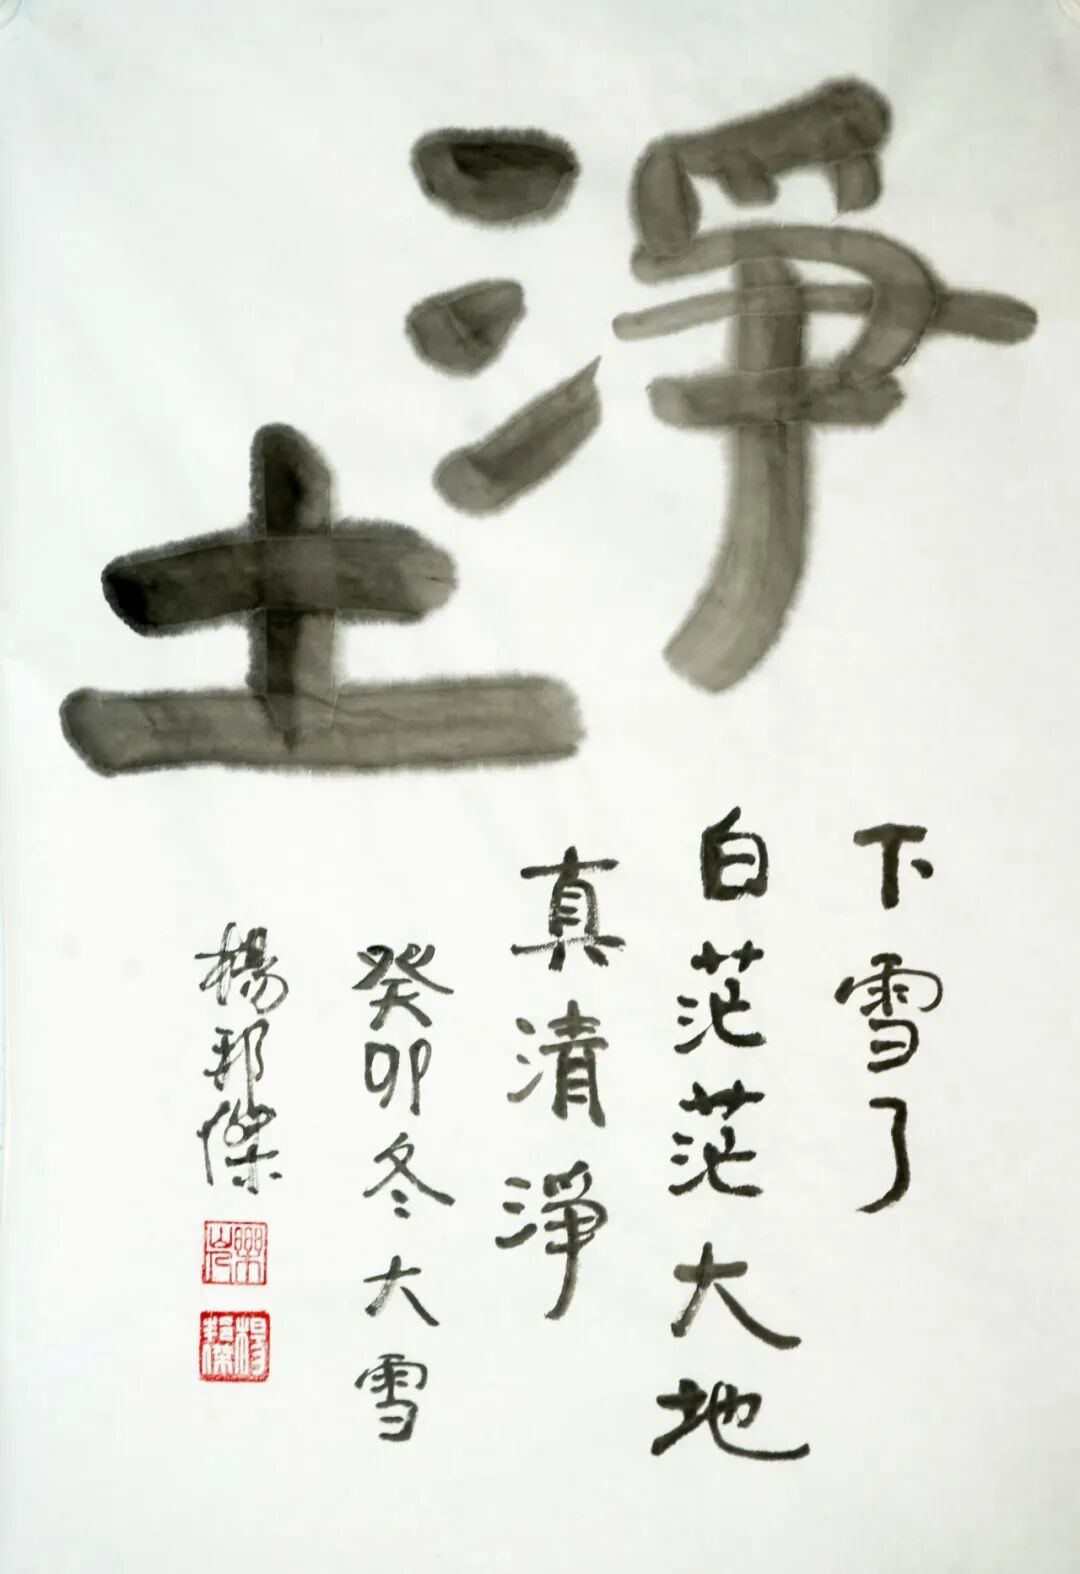 淨土
下雪了
白茫茫大地
真清淨
癸卯冬大雪
楊邦傑
楊邦傑